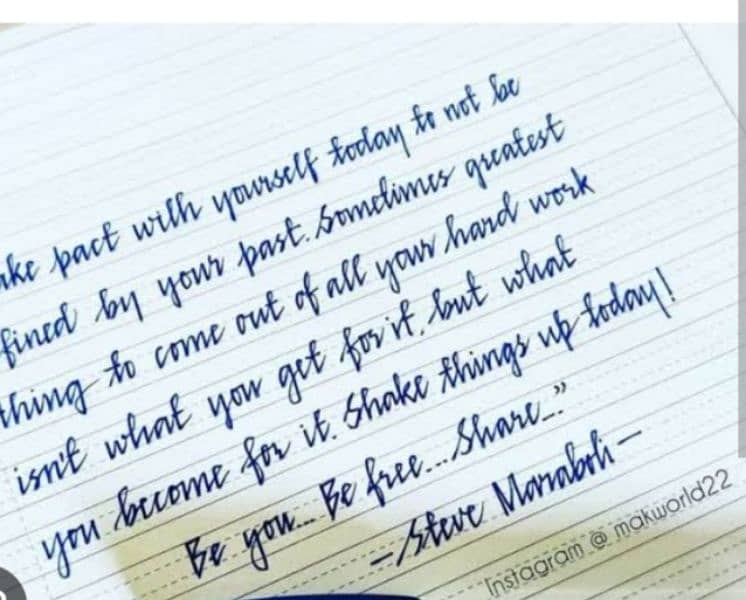 ake pact with yourself today to not be
fined by your past. Sometimes greatest
thing to come out of all your hard work
isn't what you get for it, but what
you become for it. Shake things up today!
Be you... Be free... Share..."
- Steve Marraboli -
Instagram @ makworld22